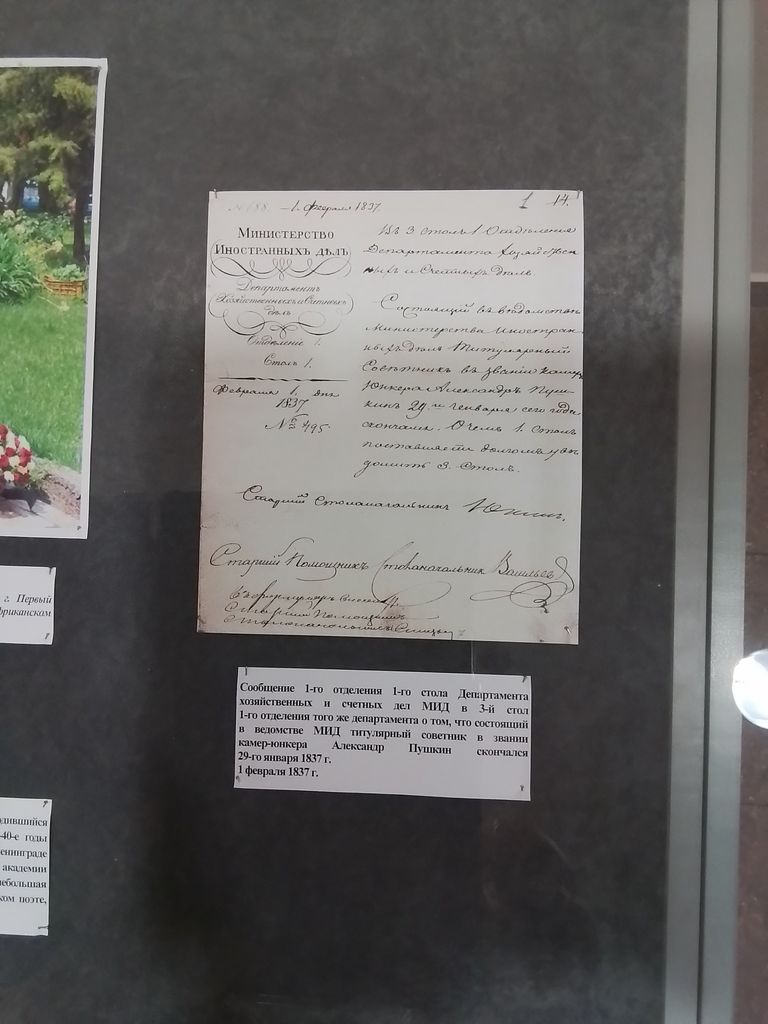 № 188. — 1. Февраля 1837.
1 14.
МИНИСТЕРСТВО
ИНОСТРАННЫХЪ ДѢЛЪ
Департаментъ
Хозяйственныхъ и Счетныхъ
дѣлъ
Отдѣленіе 1.
Столъ 1.
Февраля 1. дня
1837
№ 495.
Въ 3 столъ 1 Отдѣленія
Департамента Хозяйствен
ныхъ и Счетныхъ Дѣлъ.
Состоящій въ вѣдомствѣ
Министерства Иностран
ныхъ дѣлъ Титулярный
Совѣтникъ въ званіи Камеръ
Юнкера Александръ Пуш
кинъ 29го Генваря сего года
скончался. О чемъ 1. Столъ
поставляетъ долгомъ увѣ
домить 3. Столъ.
Старшій Столоначальникъ
Старшій Помощникъ Столоначальника Васильевъ
Старшій Помощникъ
г. Первый
фриканском
Сообщение 1-го отделения 1-го стола Департамента
хозяйственных и счетных дел МИД в 3-й стол
1-го отделения того же департамента о том, что состоящий
в ведомстве МИД титулярный советник в звании
камер-юнкера Александр Пушкин скончался
29-го января 1837 г.
1 февраля 1837 г.
одившийся
-40-е годы
енинграде
академии
небольшая
ком поэте,